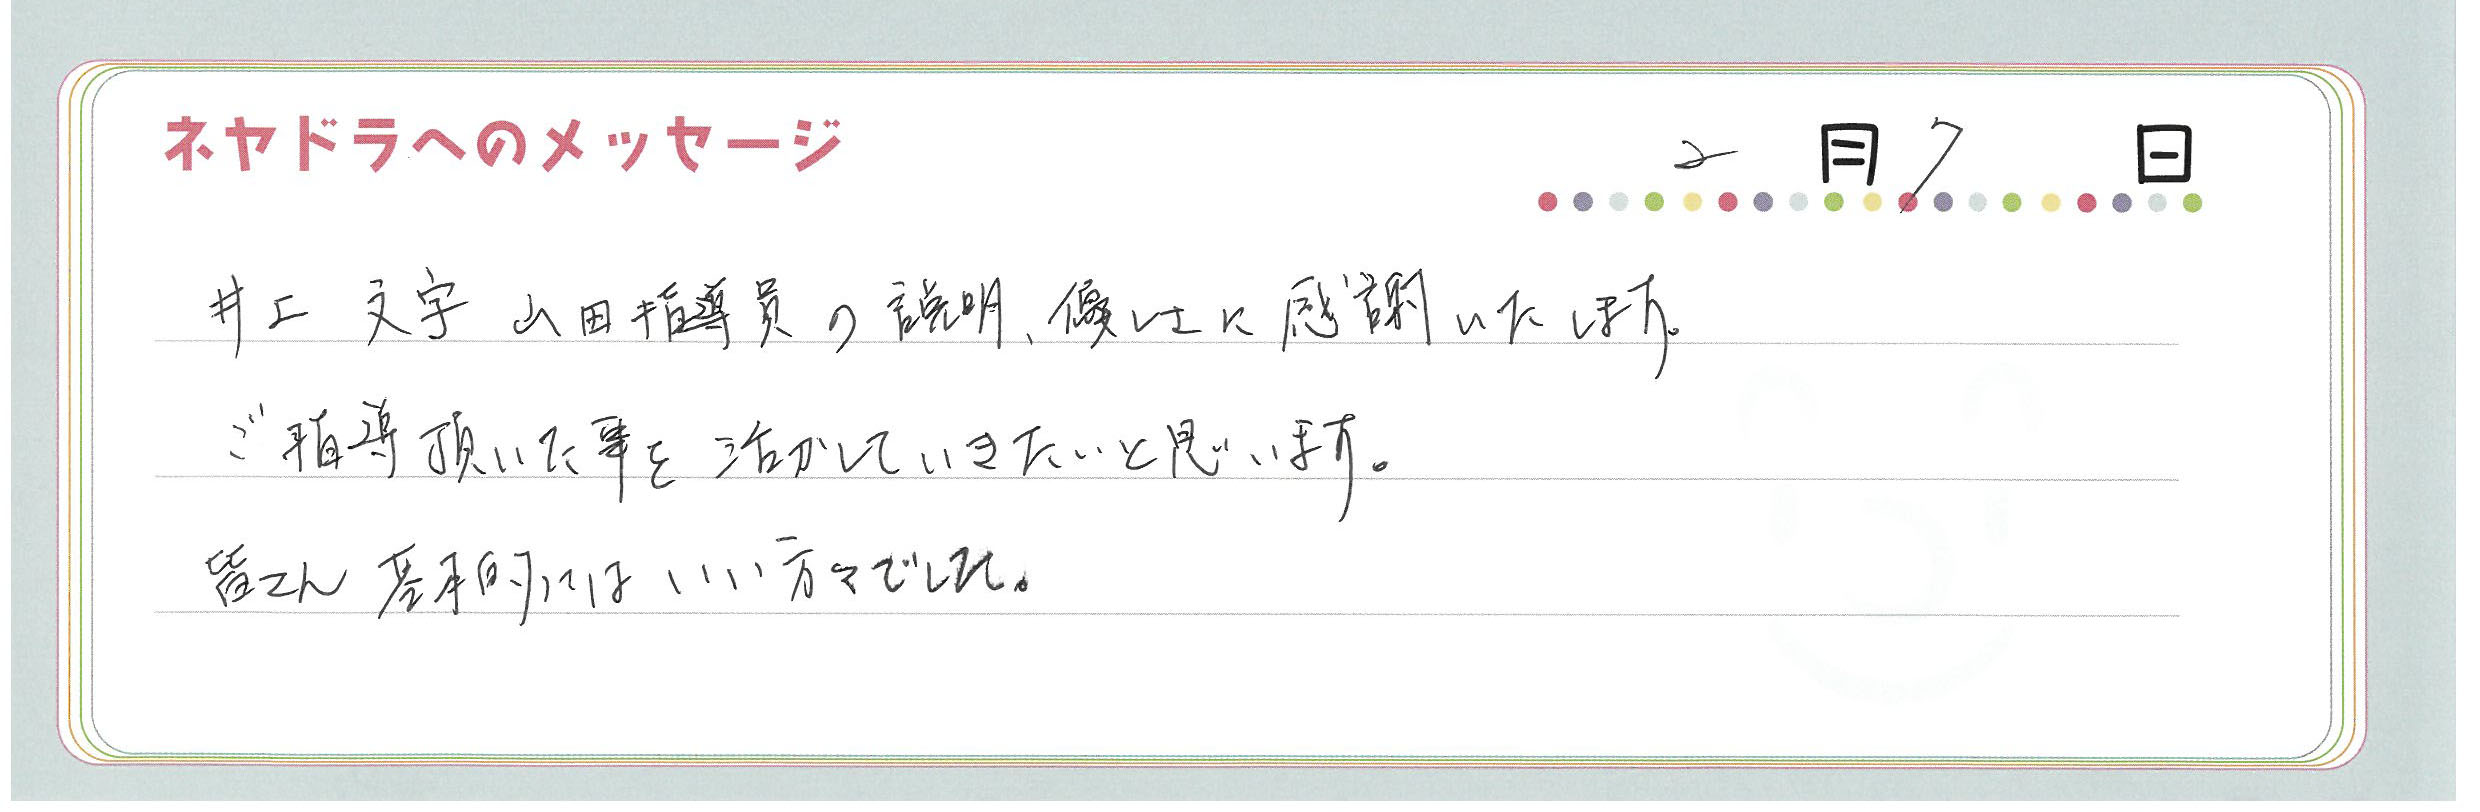 ネヤドラへのメッセージ
2月7日
井上 文字 山田指導員の説明、優しさに感謝いたします。
ご指導頂いた事を活かしていきたいと思います。
皆さん基本的にはいい方々でした。